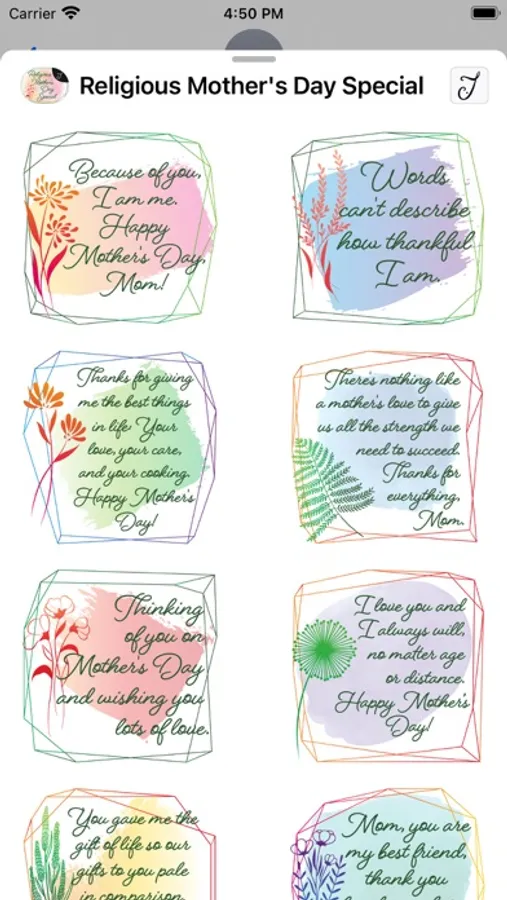 Carrier 4:50 PM
Religious Mother's Day Special
Because of you,
I am me.
Happy
Mother's Day,
Mom!
Words
can't describe
how thankful
I am.
Thanks for giving
me the best things
in life: Your
love, your care,
and your cooking.
Happy Mother's
Day!
There's nothing like
a mother's love to give
us all the strength we
need to succeed.
Thanks for
everything,
Mom.
Thinking
of you on
Mother's Day
and wishing you
lots of love.
I love you and
I always will,
no matter age
or distance.
Happy Mother's
Day!
You gave me the
gift of life so our
gifts to you pale
in comparison.
Mom, you are
my best friend,
thank you